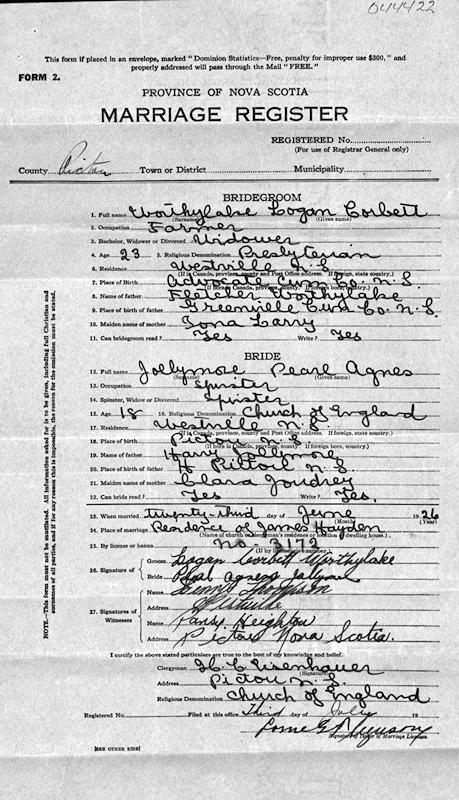 044422
This form if placed in an envelope, marked "Dominion Statistics—Free, penalty for improper use $300," and
properly addressed will pass through the Mail "FREE."
FORM 2.
PROVINCE OF NOVA SCOTIA
MARRIAGE REGISTER
REGISTERED No.
(For use of Registrar General only)
County Pictou Town or District Municipality
BRIDEGROOM
1. Full name Worthylake Logan Corbett
(Surname) (Given name)
2. Occupation Farmer
3. Bachelor, Widower or Divorced Widower
4. Age 23 5. Religious Denomination Presbyterian
6. Residence Westville N.S.
(If in Canada, province, county and Post Office address. If foreign, state country.)
7. Place of Birth Advocate Cum Co. N.S.
8. Name of father Fletcher Worthylake
9. Place of birth of father Greenville Cum Co. N.S.
10. Maiden name of mother
11. Can bridegroom read? Yes Write? Yes
BRIDE
12. Full name Jollymore Pearl Agnes
(Surname) (Given name)
13. Occupation Spinster
14. Spinster, Widow or Divorced Spinster
15. Age 18 16. Religious Denomination Church of England
17. Residence Westville N.S.
(If in Canada, province, county and Post Office address. If foreign, state country.)
18. Place of birth Pictou N.S.
19. Name of father Harry Jollymore
20. Place of birth of father Pictou N.S.
21. Maiden name of mother Clara Joudrey
22. Can bride read? Yes Write? Yes.
23. When married twenty-third day of June 1926
(Month) (Year)
24. Place of marriage Residence of James Hayden
(Name of church or clergyman's residence or location of dwelling house.)
25. By license or banns No. 3179
26. Signature of
Groom Logan Corbett Worthylake
Bride Agnes
27. Signature of Witnesses
Name
Address Westville
Name Heighton
Address Pictou Nova Scotia.
I certify the above stated particulars are true to the best of my knowledge and belief.
Clergyman H. C. Eisenhauer
(Signature)
Address Pictou N.S.
Religious Denomination Church of England
Registered No. Filed at this office Third day of July 19
Lorne
Signature of Issuer of Marriage Licenses.
[SEE OTHER SIDE]
NOTE.—This form must not be mutilated. All information asked for is to be given, including full Christian and
surnames of all parties, and if for any reason this is impossible, the reason for the omission must be stated.